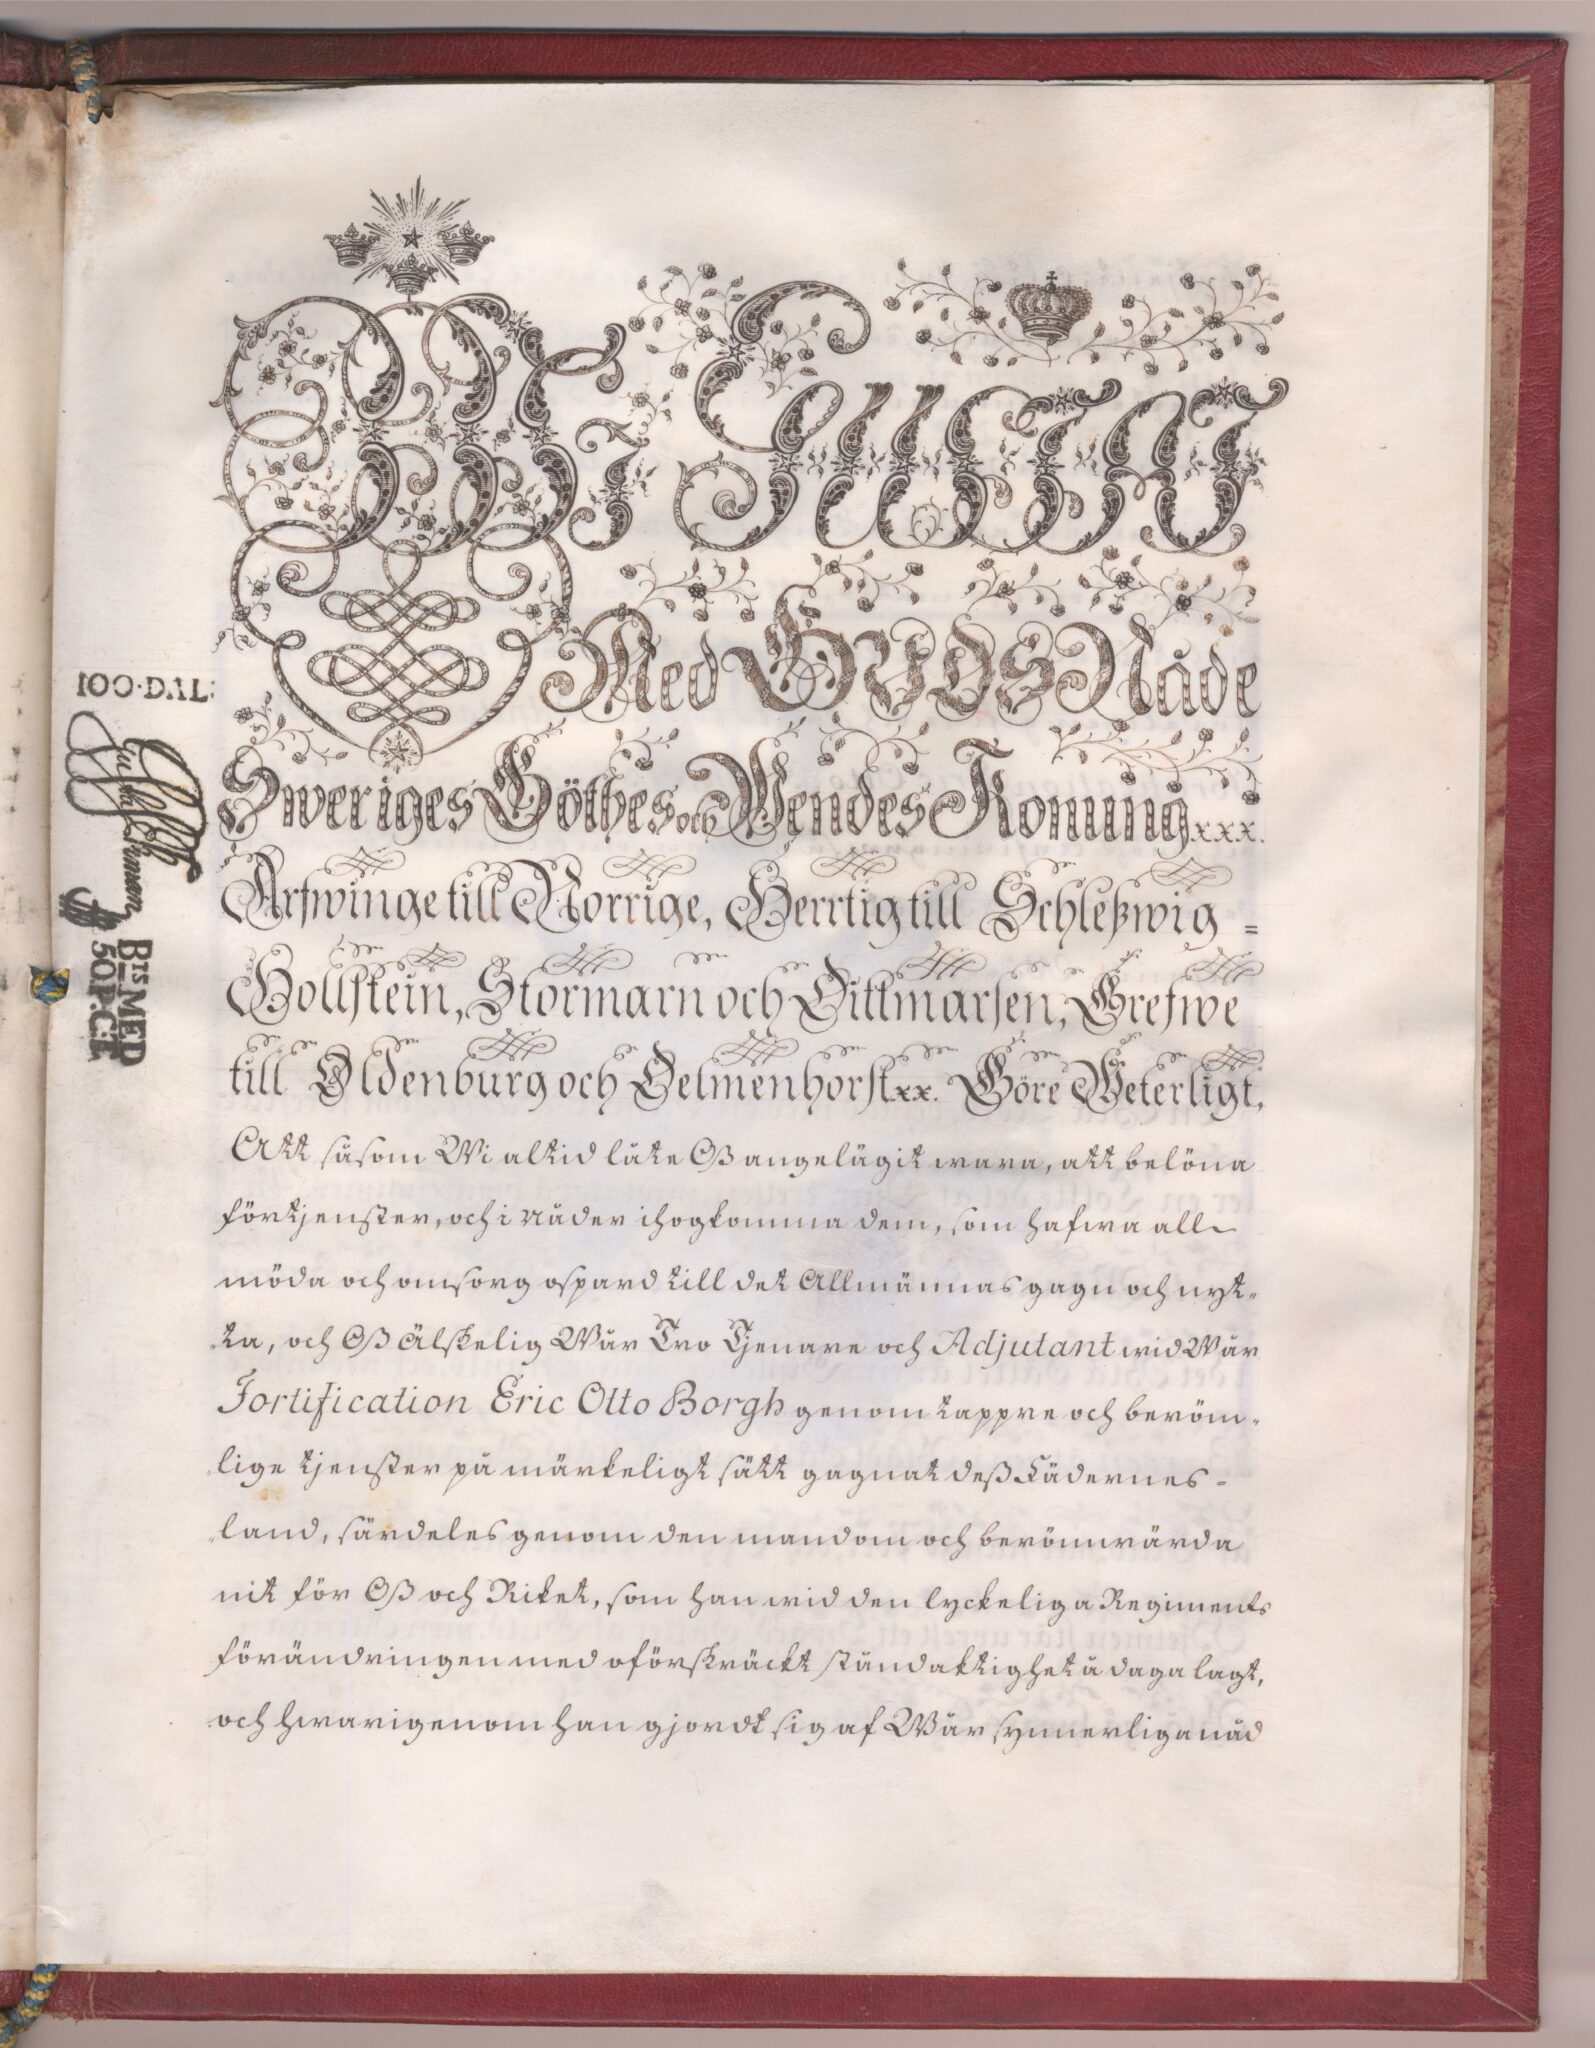 Wi Gustaf
Med GUDS Nåde
Sweriges Göthes och Wendes Konung xxx.
Arfwinge till Norrige, Herrtig till Schleßwig =
Hollstein, Stormarn och Dittmarsen, Grefwe
till Oldenburg och Delmenhorst xx. Göre Weterligt,
Att såsom Wi altid låte Oß angelägit wara, att belöna
förtjenster, och i Nåder ihogkomma dem, som hafwa all
möda och omsorg ospard till det Allmännas gagn och nyt-
ta, och Oß Älskelig Wår Tro Tjenare och Adjutant wid Wår
Fortification Eric Otto Borgh genom tappre och beröm-
lige tjenster på märkeligt sätt gagnat deß Fädernes-
land, särdeles genom den mandom och berömwärda
nit för Oß och Riket, som han wid den lyckeliga Regiments
förändringen med oförskräckt ståndaktighet å daga lagt,
och hwarigenom han gjordt sig af Wår synnerliga nåd
100·DAL:
BTS MED
50 P.CT.